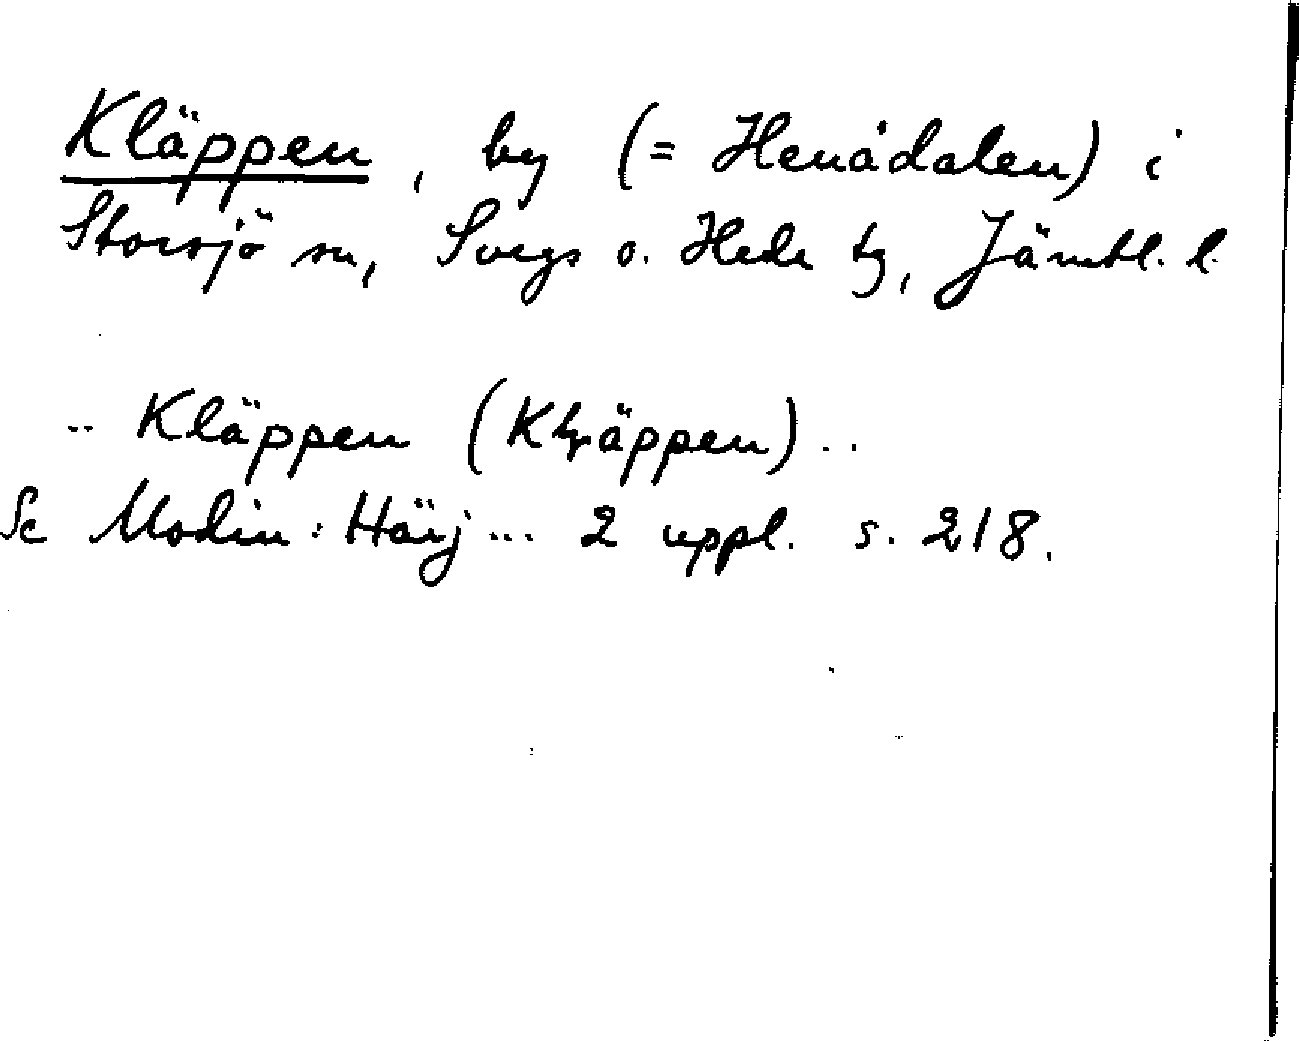 Kläppen, by (= Henådalen) i
Storsjö sn, Svegs o. Hede tg, Jämtl. l.
.. Kläppen (Kljäppen) ..
Se Modin: Härj... 2 uppl. s. 218.